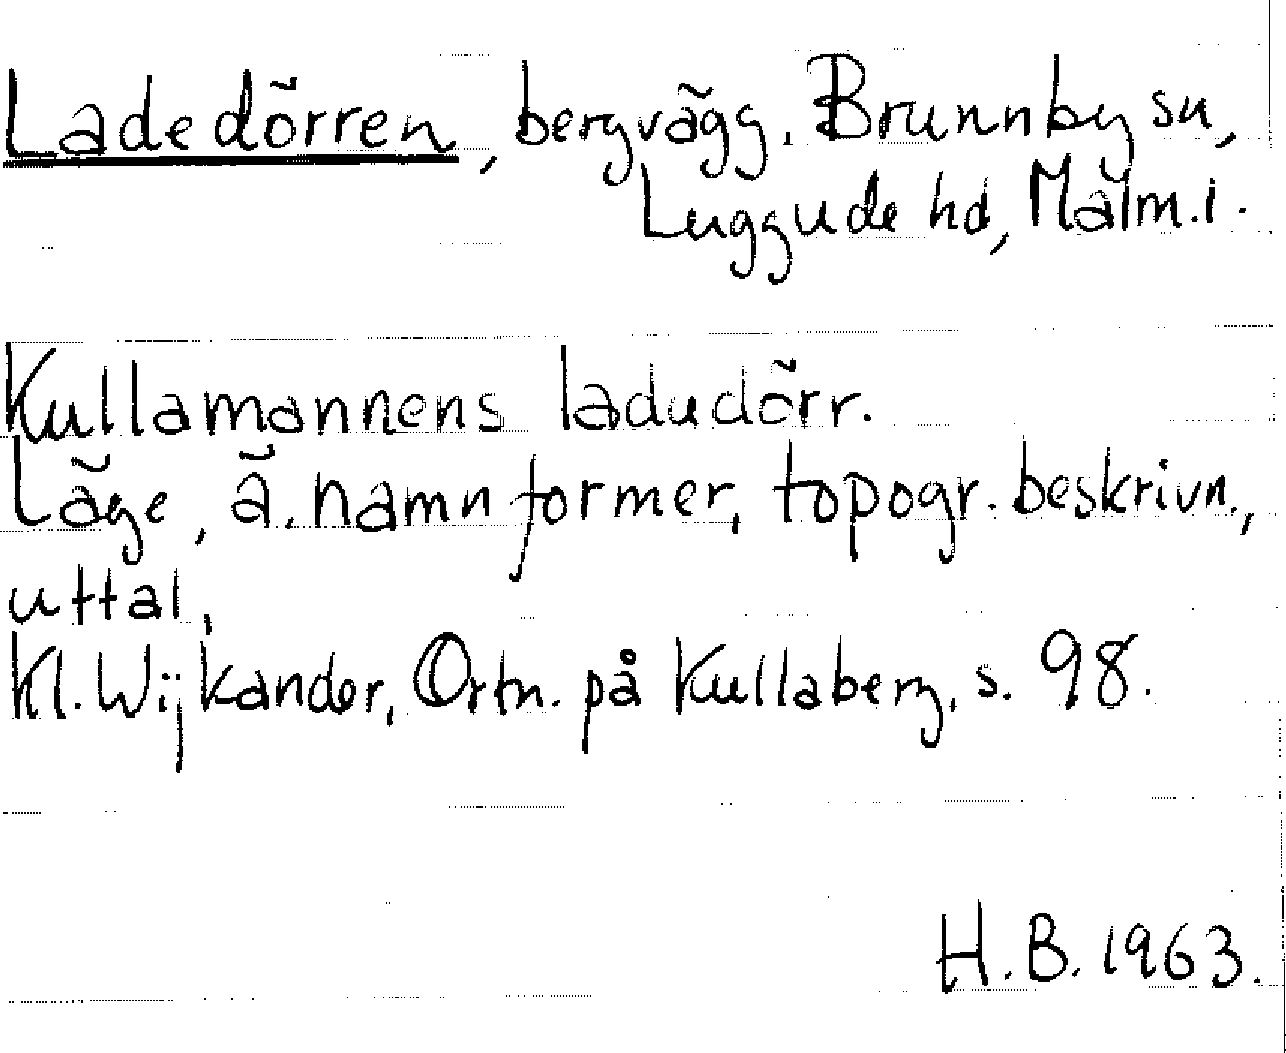 Ladedörren, bergvägg. Brunnby sn,
Luggude hd, Malm.l.
Kullamannens ladudörr.
Läge, ä. namnformer, topogr. beskrivn.,
uttal.
Kl. Wijkander, Ortn. på Kullaberg, s. 98.
H.B. 1963.